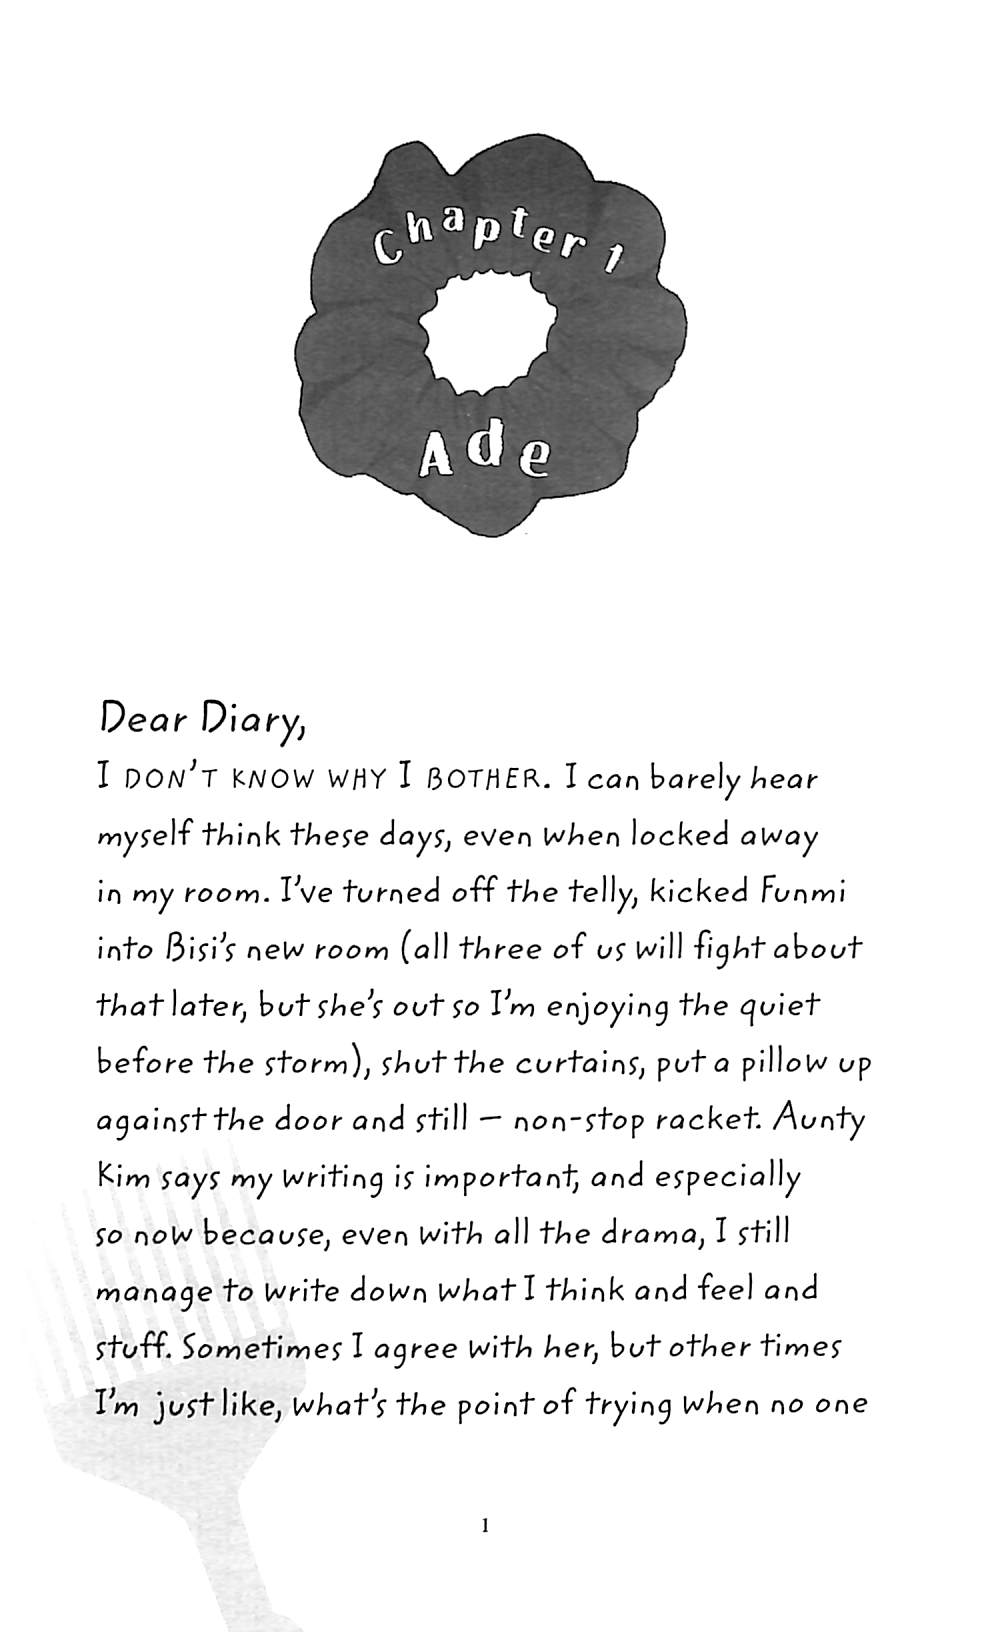 Chapter 1
Ade
Dear Diary,
I DON'T KNOW WHY I BOTHER. I can barely hear
myself think these days, even when locked away
in my room. I've turned off the telly, kicked Funmi
into Bisi's new room (all three of us will fight about
that later, but she's out so I'm enjoying the quiet
before the storm), shut the curtains, put a pillow up
against the door and still – non-stop racket. Aunty
Kim says my writing is important, and especially
so now because, even with all the drama, I still
manage to write down what I think and feel and
stuff. Sometimes I agree with her, but other times
I'm just like, what's the point of trying when no one
1